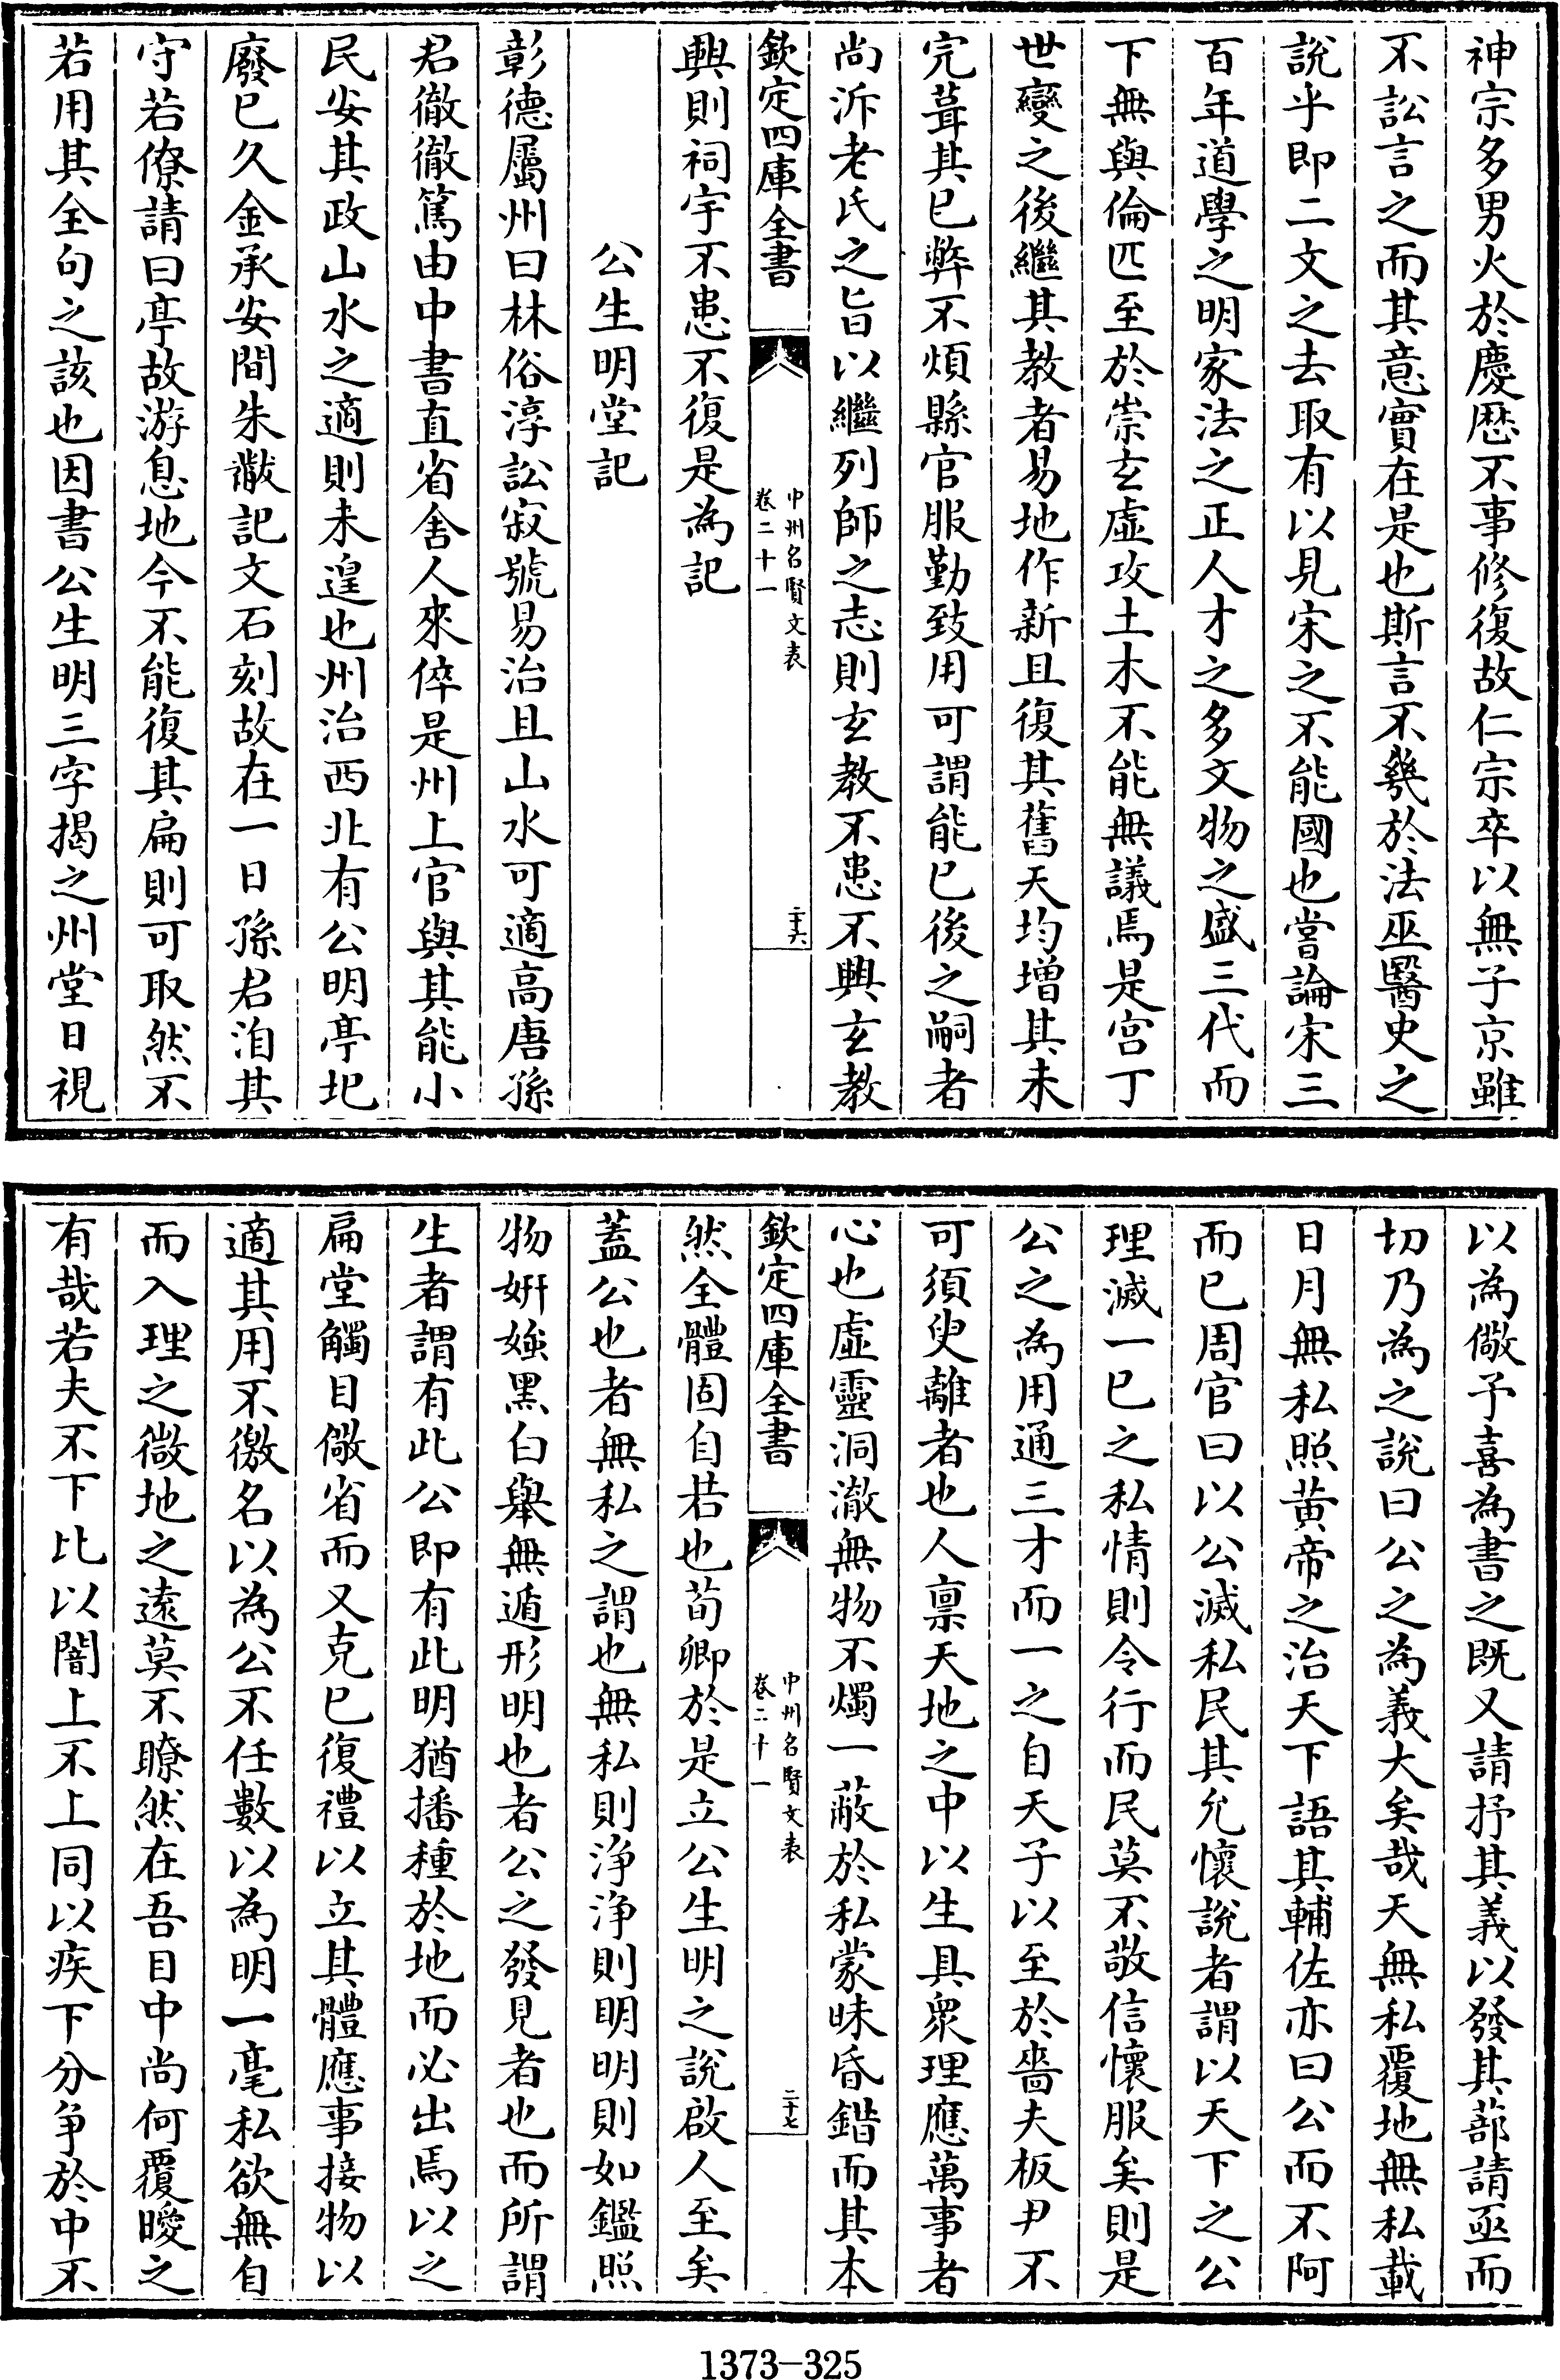 神宗多男火於慶歴不事修復故仁宗卒以無子京雖
不訟言之而其意實在是也斯言不幾於法巫醫史之
說乎即二文之去取有以見宋之不能國也嘗論宋三
百年道學之明家法之正人才之多文物之盛三代而
下無與倫匹至於崇玄虛攻土木不能無議焉是宫丁
世變之後繼其教者易地作新且復其舊天均増其未
完葺其已弊不煩縣官服勤致用可謂能已後之嗣者
尚泝老氏之旨以繼列師之志則玄教不患不興玄教
欽定四庫全書
中州名賢文表
卷二十一
二十六
興則祠宇不患不復是為記
公生明堂記
彰德屬州曰林俗淳訟寂號易治且山水可適高唐孫
君徹徹篤由中書直省舍人來倅是州上官與其能小
民安其政山水之適則未遑也州治西北有公明亭圯
廢已久金承安間朱黻記文石刻故在一日孫君洎其
守若僚請曰亭故游息地今不能復其扁則可取然不
若用其全句之該也因書公生明三字揭之州堂日視
以為儆予喜為書之既又請抒其義以發其蔀請亟而
切乃為之說曰公之為義大矣哉天無私覆地無私載
日月無私照黄帝之治天下語其輔佐亦曰公而不阿
而已周官曰以公滅私民其允懷說者謂以天下之公
理滅一已之私情則令行而民莫不敬信懷服矣則是
公之為用通三才而一之自天子以至於嗇夫板尹不
可須臾離者也人禀天地之中以生具衆理應萬事者
心也虛靈洞澈無物不燭一蔽於私蒙昧昏鍇而其本
欽定四庫全書
中州名賢文表
卷二十一
二十七
然全體固自若也荀卿於是立公生明之說啟人至矣
蓋公也者無私之謂也無私則浄浄則明明則如鑑照
物妍媸黑白舉無遁形明也者公之發見者也而所謂
生者謂有此公即有此明猶播種於地而必出焉以之
扁堂觸目儆省而又克已復禮以立其體應事接物以
適其用不徼名以為公不任數以為明一毫私欲無自
而入理之微地之遠莫不瞭然在吾目中尚何覆曖之
有哉若夫不下比以闇上不上同以疾下分争於中不
1373-325